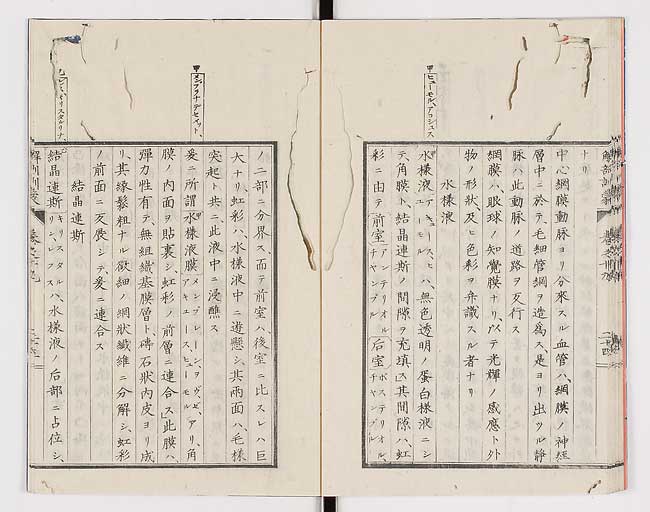 甲ヒューモル、アクシュス
ナリ
中心網膜動脉ヨリ分來スル血管ハ、網膜ノ神經
層中ニ於テ毛細管網ヲ造爲ス是ヨリ出ツル靜
脉ハ此動脉ノ道路ヲ反行ス
網膜ハ眼球ノ知覺膜ナリ、以テ光輝ノ感應ト外
物ノ形状及ヒ色彩ヲ弁識スル者ナリ
水樣液
水樣液ハ、無色透明ノ蛋白樣液ニシ
テ角膜ト、結晶連斯ノ間隙ヲ充填ス其間隙ハ、虹
彩ニ由テ前室アンテリオル、チャンブル后室ポステリオル、チャンブル
甲メンブラナデセメット、
ノ二部ニ分界ス、而テ前室ハ、後室ニ比スレハ巨
大ナリ、虹彩ハ、水樣液中ニ遊懸シ、其兩面ハ、毛樣
突起ト共ニ、此液中ニ浸醮ス
爰ニ所謂水樣液膜アリ、角
膜ノ内面ヲ貼裏シ、虹彩ノ前層ニ連合ス此膜ハ、
彈力性有テ、無組織基膜層ト、磚石狀内皮ヨリ成
リ、其緣鬆粗ナル微細ノ網狀纖維ニ分解シ、虹彩
ノ前面ニ反展シテ、爰ニ連合ス
結晶連斯
結晶連斯キリスタルリン、レンスハ、水樣液ノ后部ニ占位シ、